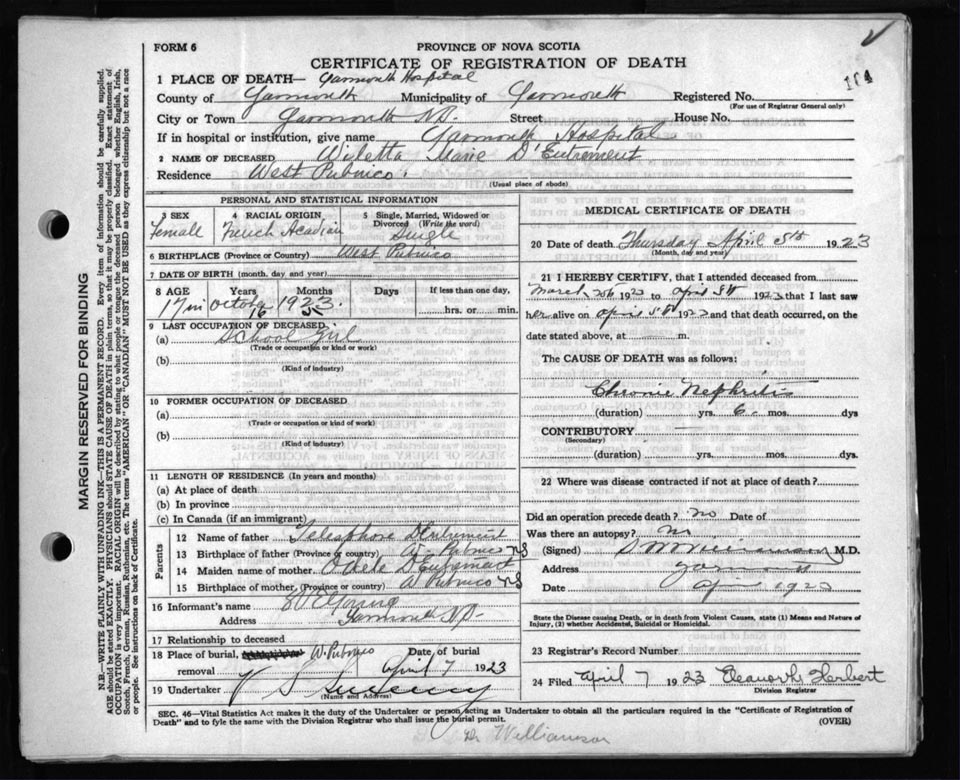 FORM 6
PROVINCE OF NOVA SCOTIA
CERTIFICATE OF REGISTRATION OF DEATH
1 PLACE OF DEATH— Yarmouth Hospital
County of Yarmouth Municipality of Yarmouth Registered No.
(For use of Registrar General only)
City or Town Yarmouth N.S. Street House No.
If in hospital or institution, give name Yarmouth Hospital
2 NAME OF DECEASED Wiletta Marie D'Entremont
Residence West Pubnico.
(Usual place of abode)
PERSONAL AND STATISTICAL INFORMATION
3 SEX 4 RACIAL ORIGIN 5 Single, Married, Widowed or Divorced (Write the word)
Female French Acadian Single
6 BIRTHPLACE (Province or Country) West Pubnico
7 DATE OF BIRTH (month, day, and year)
8 AGE Years Months Days If less than one day,
17 in October 1923.
16 5
hrs. or min.
9 LAST OCCUPATION OF DECEASED
(a) School Girl
(Trade or occupation or kind of work)
(b)
(Kind of industry)
10 FORMER OCCUPATION OF DECEASED
(a)
(Trade or occupation or kind of work)
(b)
(Kind of industry)
11 LENGTH OF RESIDENCE (In years and months)
(a) At place of death
(b) In province
(c) In Canada (if an immigrant)
Parents
12 Name of father Telesphore D'Entremont
13 Birthplace of father (Province or country) W. Pubnico NS
14 Maiden name of mother Odele D'Entremont
15 Birthplace of mother (Province or country) W. Pubnico NS
16 Informant's name
Address Yarmouth N.S.
17 Relationship to deceased
18 Place of burial W. Pubnico Date of burial
removal April 7 1923
19 Undertaker V S Sweeny
(Name and Address)
MEDICAL CERTIFICATE OF DEATH
20 Date of death Thursday April 5th 1923
(Month, day and year)
21 I HEREBY CERTIFY, that I attended deceased from
March 1923 to April 5th 1923 that I last saw
her alive on April 5th 1923 and that death occurred, on the
date stated above, at m.
The CAUSE OF DEATH was as follows:
Chronic Nephritis
(duration) yrs. 6 mos. dys
CONTRIBUTORY —
(Secondary)
(duration) yrs. mos. dys.
22 Where was disease contracted if not at place of death?
Did an operation precede death? no Date of
Was there an autopsy? no
(Signed) Williamson M.D.
Address Yarmouth
Date April 1923
State the Disease causing Death, or in death from Violent Causes, state (1) Means and Nature of Injury, (2) whether Accidental, Suicidal or Homicidal.
23 Registrar's Record Number
24 Filed April 7 1923 Eleanor h Herbert
Division Registrar
SEC. 46—Vital Statistics Act makes it the duty of the Undertaker or person acting as Undertaker to obtain all the particulars required in the "Certificate of Registration of
Death" and to fyle the same with the Division Registrar who shall issue the burial permit. (OVER)
Dr Williamson
MARGIN RESERVED FOR BINDING
N.B.—WRITE PLAINLY WITH UNFADING INK—THIS IS A PERMANENT RECORD. Every item of information should be carefully supplied.
AGE should be stated EXACTLY. PHYSICIANS should STATE CAUSE OF DEATH in plain terms, so that it may be properly classified. Exact statement of
OCCUPATION is very important. RACIAL ORIGIN will be described by stating to what people or tongue the deceased person belonged whether English, Irish,
Scotch, French, German, Russian, Ruthenian, etc. The terms "AMERICAN" OR "CANADIAN" MUST NOT BE USED as they express citizenship but not a race
or people. See instructions on back of Certificate.